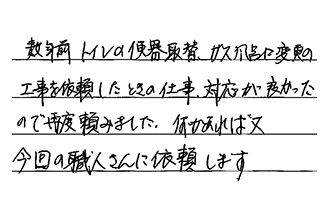 数年前 トイレの便器取替、ガス風呂に変更の
工事を依頼したときの仕事、対応が良かった
ので再度頼みました。何かあれば又
今回の職人さんに依頼します